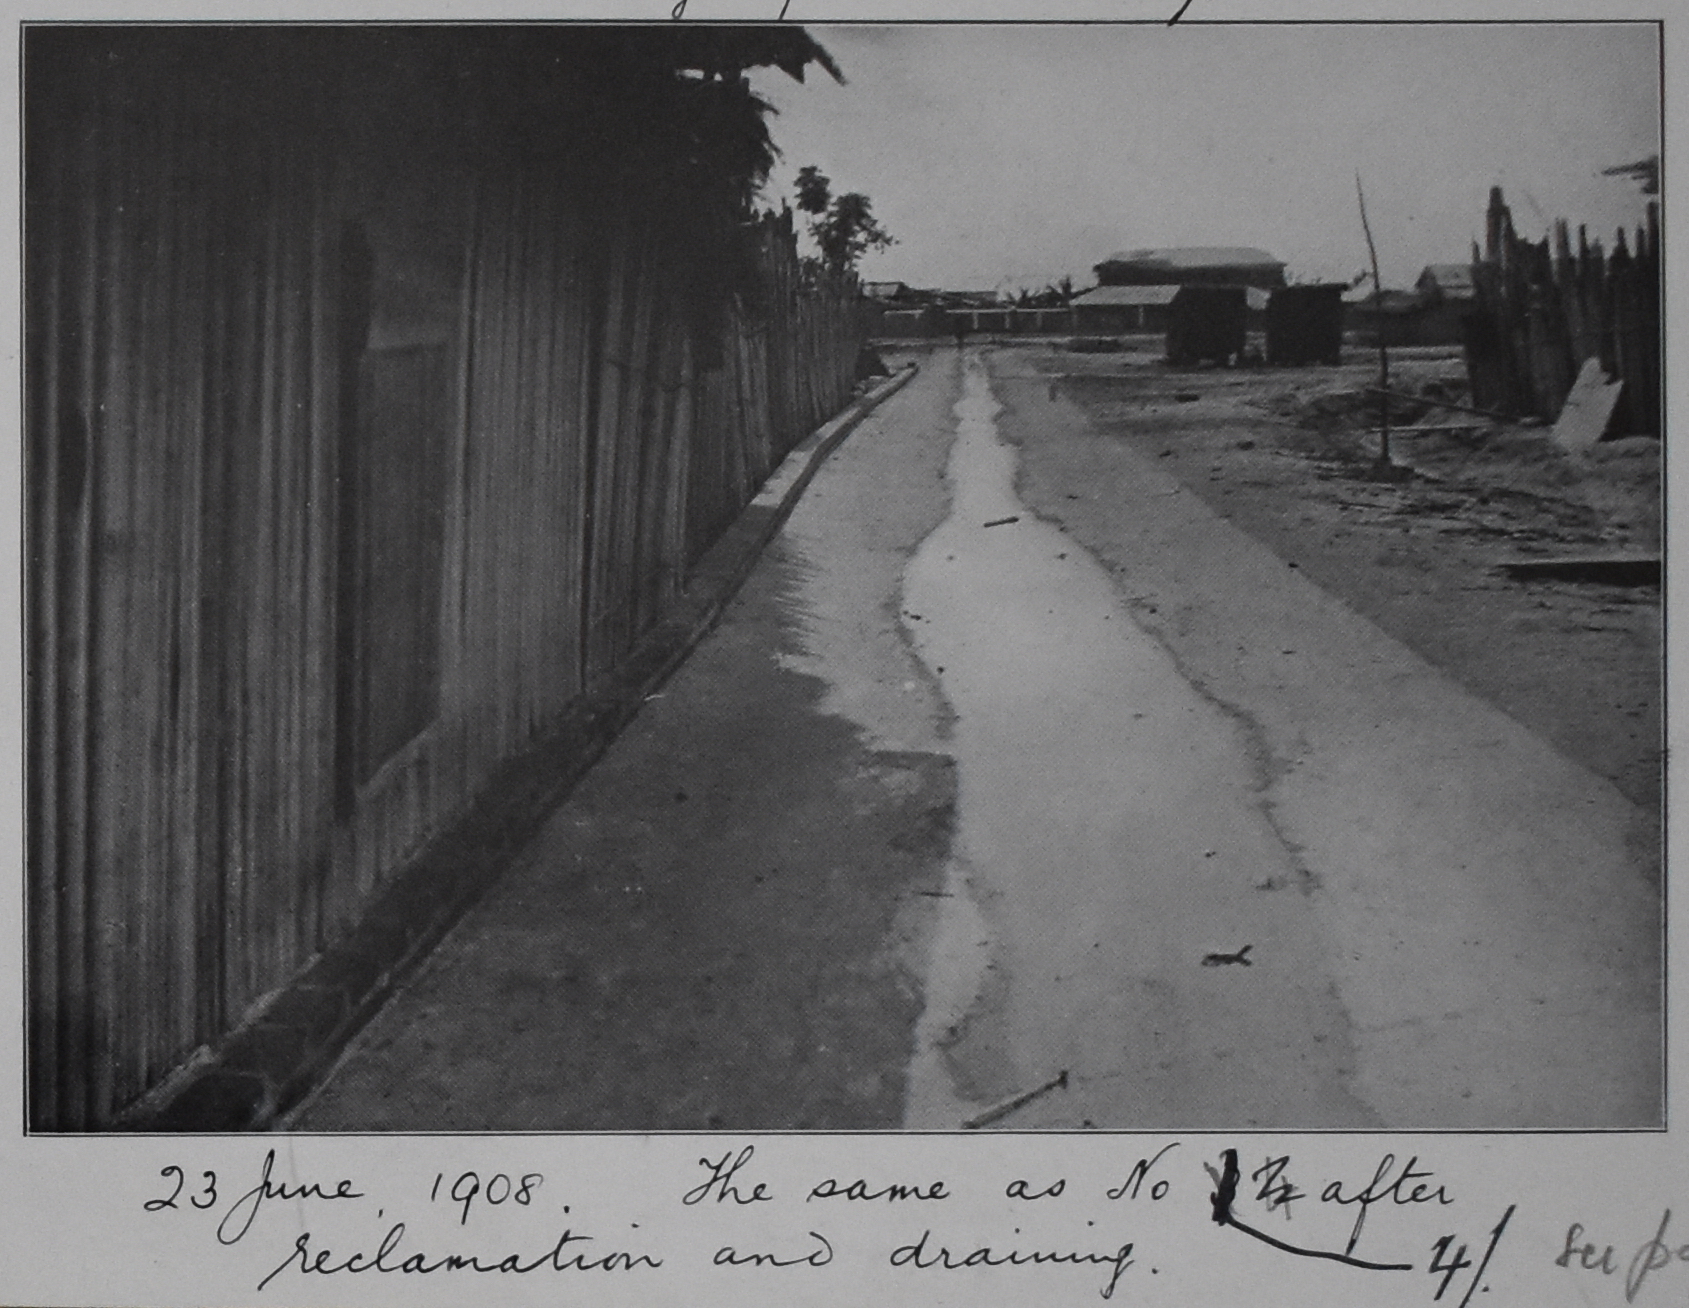 23 June, 1908. The same as No after
reclamation and draining.
4/. See